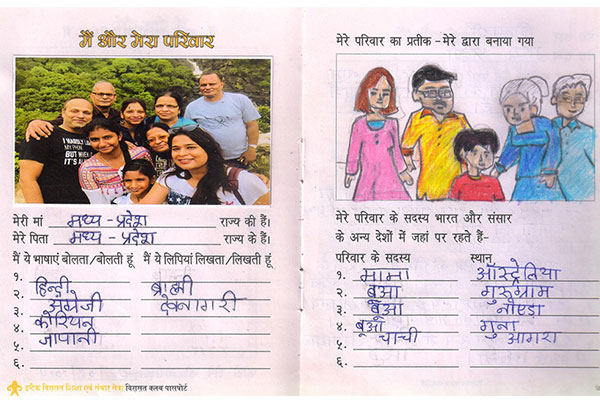 मैं और मेरा परिवार
मेरी मां मध्य - प्रदेश राज्य की हैं।
मेरे पिता मध्य - प्रदेश राज्य के हैं।
मैं ये भाषाएं बोलता/बोलती हूं मैं ये लिपियां लिखता/लिखती हूं
१. हिन्दी ब्राह्मी
२. अंग्रेजी देवनागरी
३. कोरियन
४. जापानी
५.
६.
इंटैक विरासत शिक्षा एवं संचार सेवा विरासत क्लब पासपोर्ट
मेरे परिवार का प्रतीक - मेरे द्वारा बनाया गया
मेरे परिवार के सदस्य भारत और संसार
के अन्य देशों में जहां पर रहते हैं-
परिवार के सदस्य स्थान
१. मामा ऑस्ट्रेलिया
२. बूआ गुरुग्राम
३. बूआ नोएडा
४. बूआ गुना
५. चाची आगरा
६.